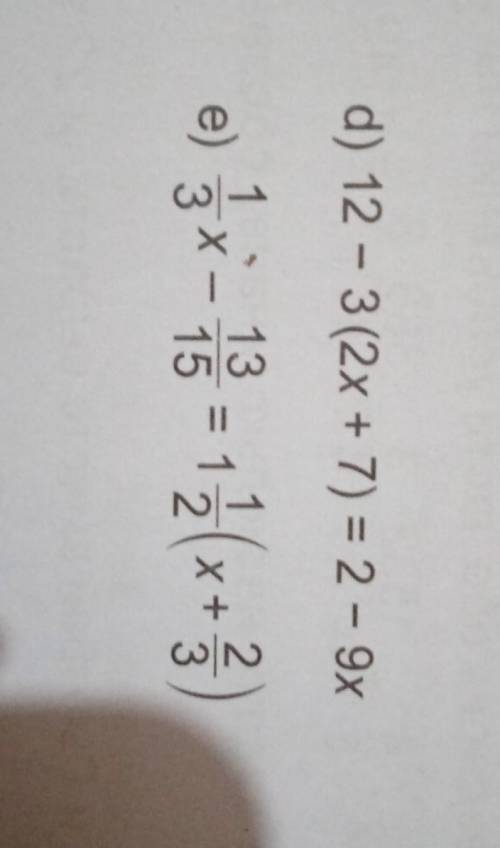 d) 12 − 3(2x + 7) = 2 − 9x
e) 1/3 x − 13/15 = 1 1/2 (x + 2/3)